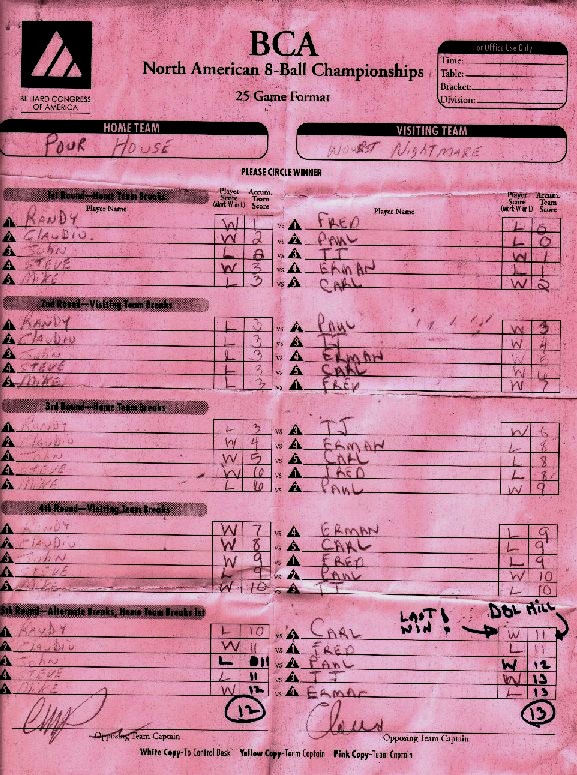 BCA
North American 8-Ball Championships
25 Game Format
BILLIARD CONGRESS
OF AMERICA
For Office Use Only
Time:
Table:
Bracket:
Division:
HOME TEAM
VISITING TEAM
POUR HOUSE
WORST NIGHTMARE
PLEASE CIRCLE WINNER
1st Round—Home Team Breaks
Player Name Player Score (W or L) Accum. Team Score Player Name Player Score (W or L) Accum. Team Score
1 RANDY W 1 vs 1 FRED L 0
2 CLAUDIO W 2 vs 2 PAUL L 0
3 JOHN L 2 vs 3 TJ W 1
4 STEVE W 3 vs 4 ERMAN L 1
5 MIKE L 3 vs 5 CARL W 2
2nd Round—Visiting Team Breaks
1 RANDY L 3 vs 2 PAUL W 3
2 CLAUDIO L 3 vs 3 TJ W 4
3 JOHN L 3 vs 4 ERMAN W 5
4 STEVE L 3 vs 5 CARL W 6
5 MIKE L 3 vs 1 FRED W 7
3rd Round—Home Team Breaks
1 RANDY L 3 vs 3 TJ W 8
2 CLAUDIO W 4 vs 4 ERMAN L 8
3 JOHN W 5 vs 5 CARL L 8
4 STEVE W 6 vs 1 FRED L 8
5 MIKE L 6 vs 2 PAUL W 9
4th Round—Visiting Team Breaks
1 RANDY W 7 vs 4 ERMAN L 9
2 CLAUDIO W 8 vs 5 CARL L 9
3 JOHN W 9 vs 1 FRED L 9
4 STEVE L 9 vs 2 PAUL W 10
5 MIKE W 10 vs 3 TJ L 10
LAST WIN! DBL HILL
5th Round—Alternate Breaks, Home Team Breaks 1st
1 RANDY L 10 vs 5 CARL W 11
2 CLAUDIO W 11 vs 1 FRED L 11
3 JOHN L 11 vs 2 PAUL W 12
4 STEVE L 11 vs 3 TJ W 13
5 MIKE W 12 vs 4 ERMAN L 13
12 13
Opposing Team Captain Opposing Team Captain
White Copy-To Control Desk Yellow Copy-Team Captain Pink Copy-Team Captain